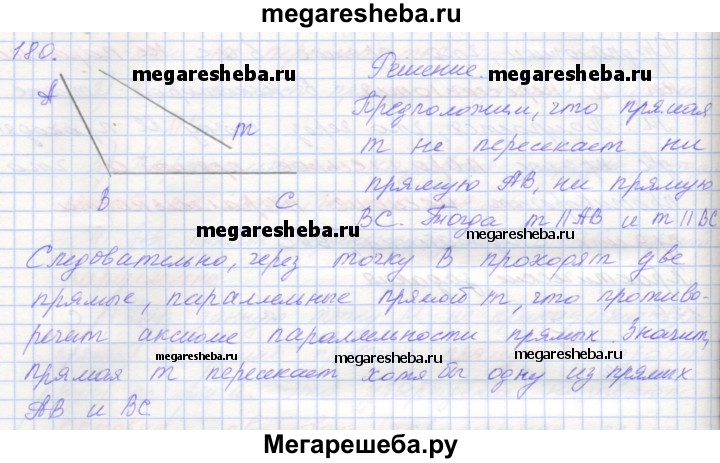 megaresheba.ru
180.
megaresheba.ru
megaresheba.ru
Решение.
A
m
B
C
Предположим, что прямая
m не пересекает ни
прямую AB, ни прямую
BC. Тогда m || AB и m || BC
megaresheba.ru
megaresheba.ru
Следовательно, через точку B проходят две
прямые, параллельные прямой m, что противо-
речит аксиоме параллельности прямых. Значит,
megaresheba.ru
megaresheba.ru
megaresheba.ru
прямая m пересекает хотя бы одну из прямых
AB и BC
Мегарешеба.ру